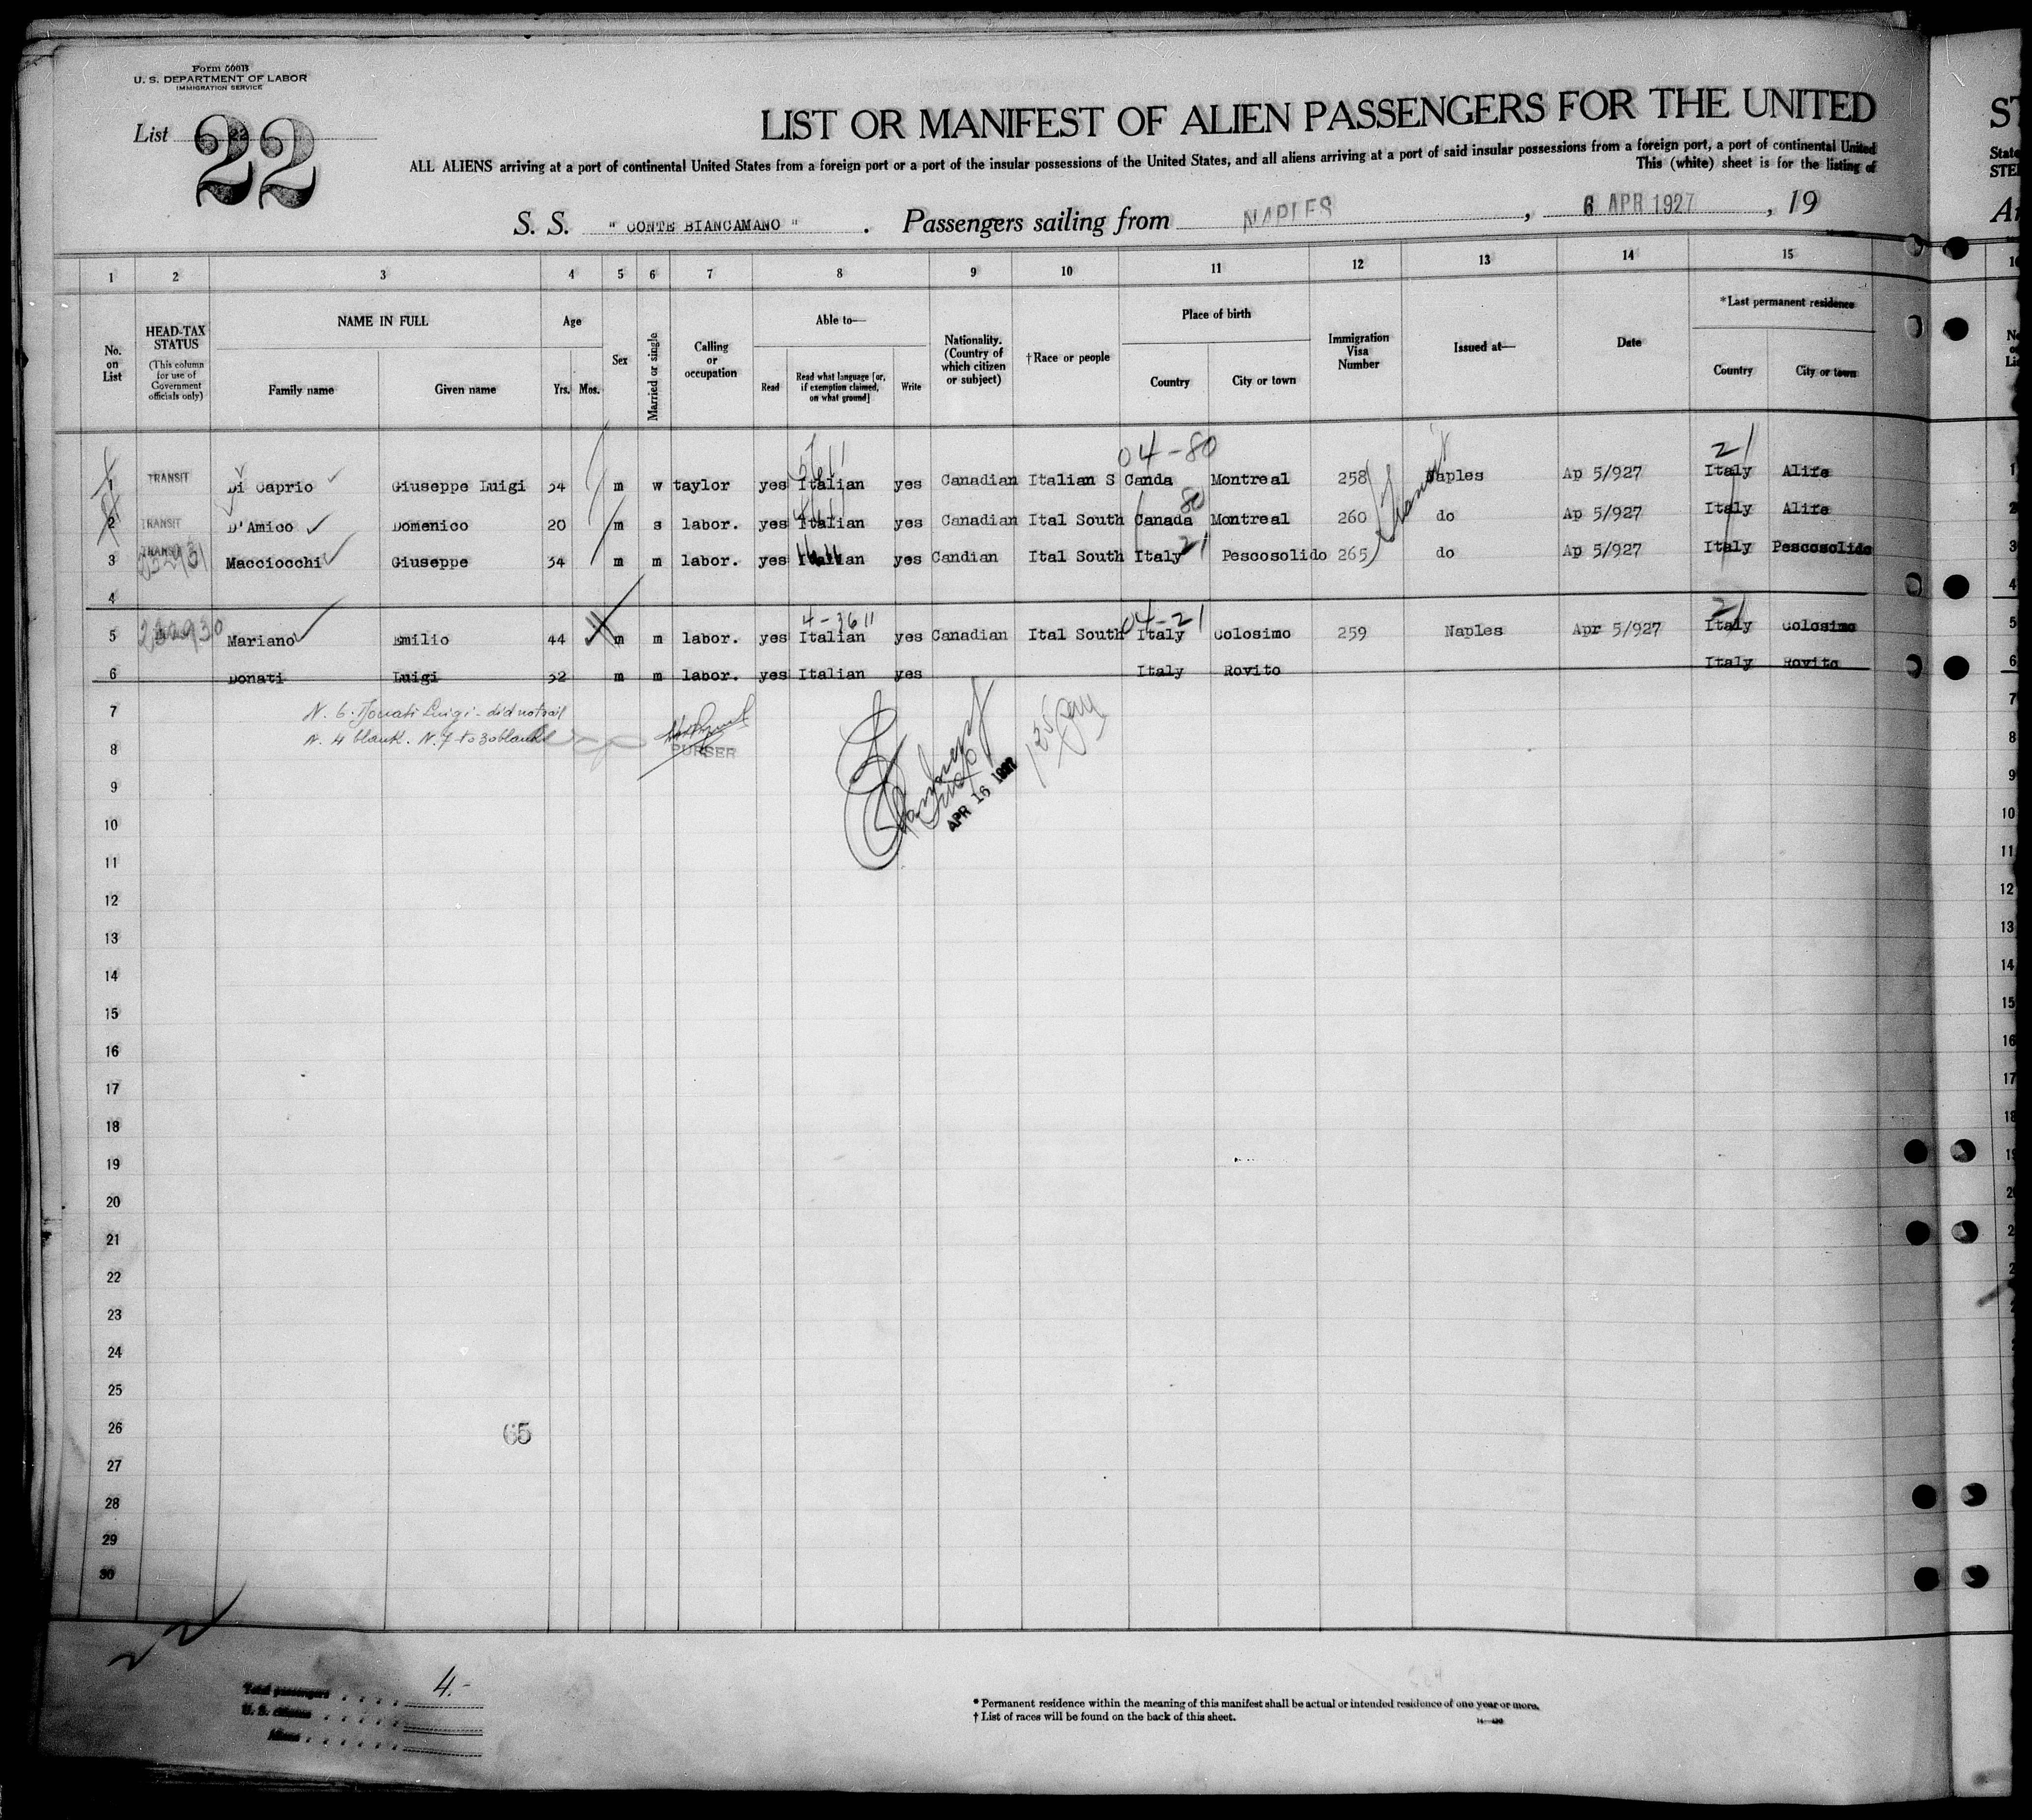 Form 500B
U. S. DEPARTMENT OF LABOR
IMMIGRATION SERVICE
List 22
22
LIST OR MANIFEST OF ALIEN PASSENGERS FOR THE UNITED
ALL ALIENS arriving at a port of continental United States from a foreign port or a port of the insular possessions of the United States, and all aliens arriving at a port of said insular possessions from a foreign port, a port of continental United
This (white) sheet is for the listing of
S. S. " CONTE BIANCAMANO " . Passengers sailing from NAPLES , 6 APR 1927 , 19
1 2 3 4 5 6 7 8 9 10 11 12 13 14 15
No. on List
HEAD-TAX STATUS
(This column for use of Government officials only)
NAME IN FULL
Family name
Given name
Age
Yrs. Mos.
Sex
Married or single
Calling or occupation
Able to—
Read
Read what language [or, if exemption claimed, on what ground]
Write
Nationality. (Country of which citizen or subject)
†Race or people
Place of birth
Country
City or town
Immigration Visa Number
Issued at—
Date
*Last permanent residence
Country
City or town
04-80
21
1 TRANSIT Di Caprio Giuseppe Luigi 34 m w taylor yes Italian yes Canadian Italian S Canda Montreal 258 Naples Ap 5/927 Italy Alife
80
2 TRANSIT D'Amico Domenico 20 m s labor. yes Italian yes Canadian Ital South Canada Montreal 260 do Ap 5/927 Italy Alife
21
3 TRANSIT Macciocchi Giuseppe 34 m m labor. yes Italian yes Candian Ital South Italy Pescosolido 265 do Ap 5/927 Italy Pescosolido
4
4-3611 04-21 21
5 Mariano Emilio 44 m m labor. yes Italian yes Canadian Ital South Italy Colosimo 259 Naples Apr 5/927 Italy Colosimo
6 Donati Luigi 32 m m labor. yes Italian yes Italy Rovito Italy Rovito
7 N. 6. Donati Luigi - did not sail
8 N. 4 blank. N. 7 to 30 blank
PURSER
APR 16 1927
9
10
11
12
13
14
15
16
17
18
19
20
21
22
23
24
25
26
65
27
28
29
30
Total passengers . . . . 4.-
U. S. citizens . . . . .
Aliens . . . . . .
* Permanent residence within the meaning of this manifest shall be actual or intended residence of one year or more.
† List of races will be found on the back of this sheet.